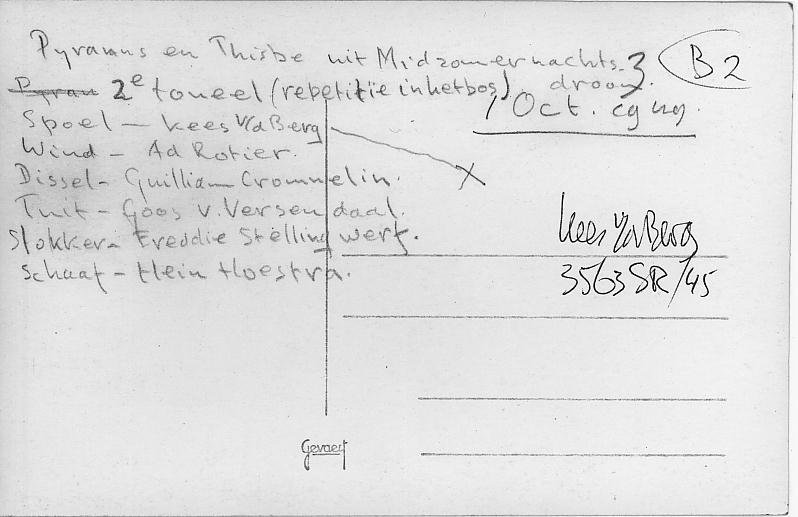 Pyramus en Thisbe uit Midzomernachts-
droom.
B2
Pyram 2e toneel (repetitie in het bos)
1 Oct.
Spoel – Kees v/d Berg
Wind – Ad Rotier.
Dissel – Guilliam Crommelin.
Tuit – Goos v. Versendaal.
Slokker – Freddie Stellingwerf.
Schaaf – Hein Hoestra.
X
Kees v/d Berg
3563 SR/45
Gevaert